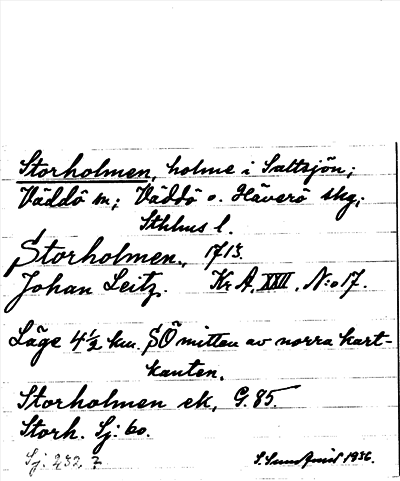 Storholmen, holme i Saltsjön;
Väddö sn; Väddö o. Häverö skg;
Sthlms l.
Storholmen., 1715.
Johan Leitz. Kr A, XXII, N:o 17.
Läge 4 1/2 km. SÖ mitten av norra kart-
kanten.
Storholmen ek, G. 85.
Storh. Sj: 60.
Sj: 232 ?
S. Sundquist 1936.